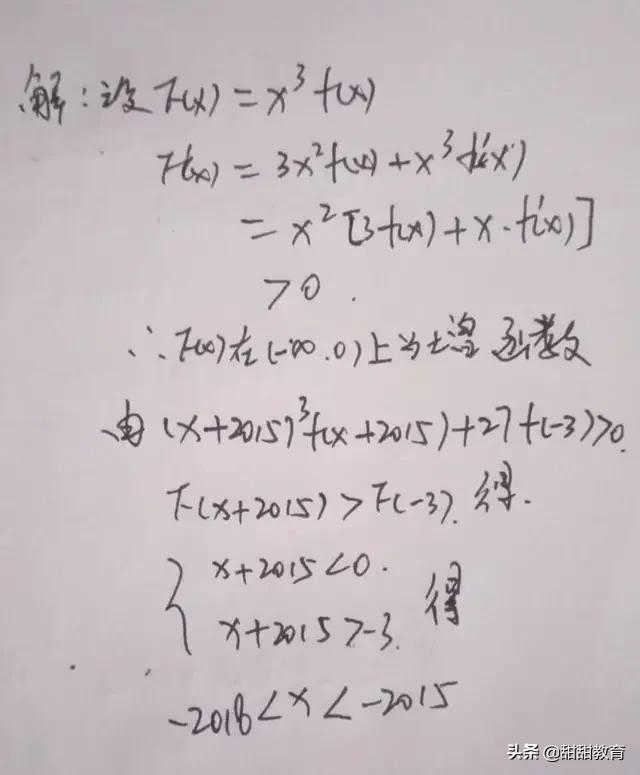 解:设F(x)=x³f(x)
F'(x)=3x²f(x)+x³f'(x)
=x²[3f(x)+x·f'(x)]
>0.
∴F(x)在(-∞.0)上为增函数
由(x+2015)³f(x+2015)+27f(-3)>0.
F(x+2015)>F(-3).得.
x+2015<0.
x+2015>-3. 得
-2018<x<-2015
头条 @甜甜教育